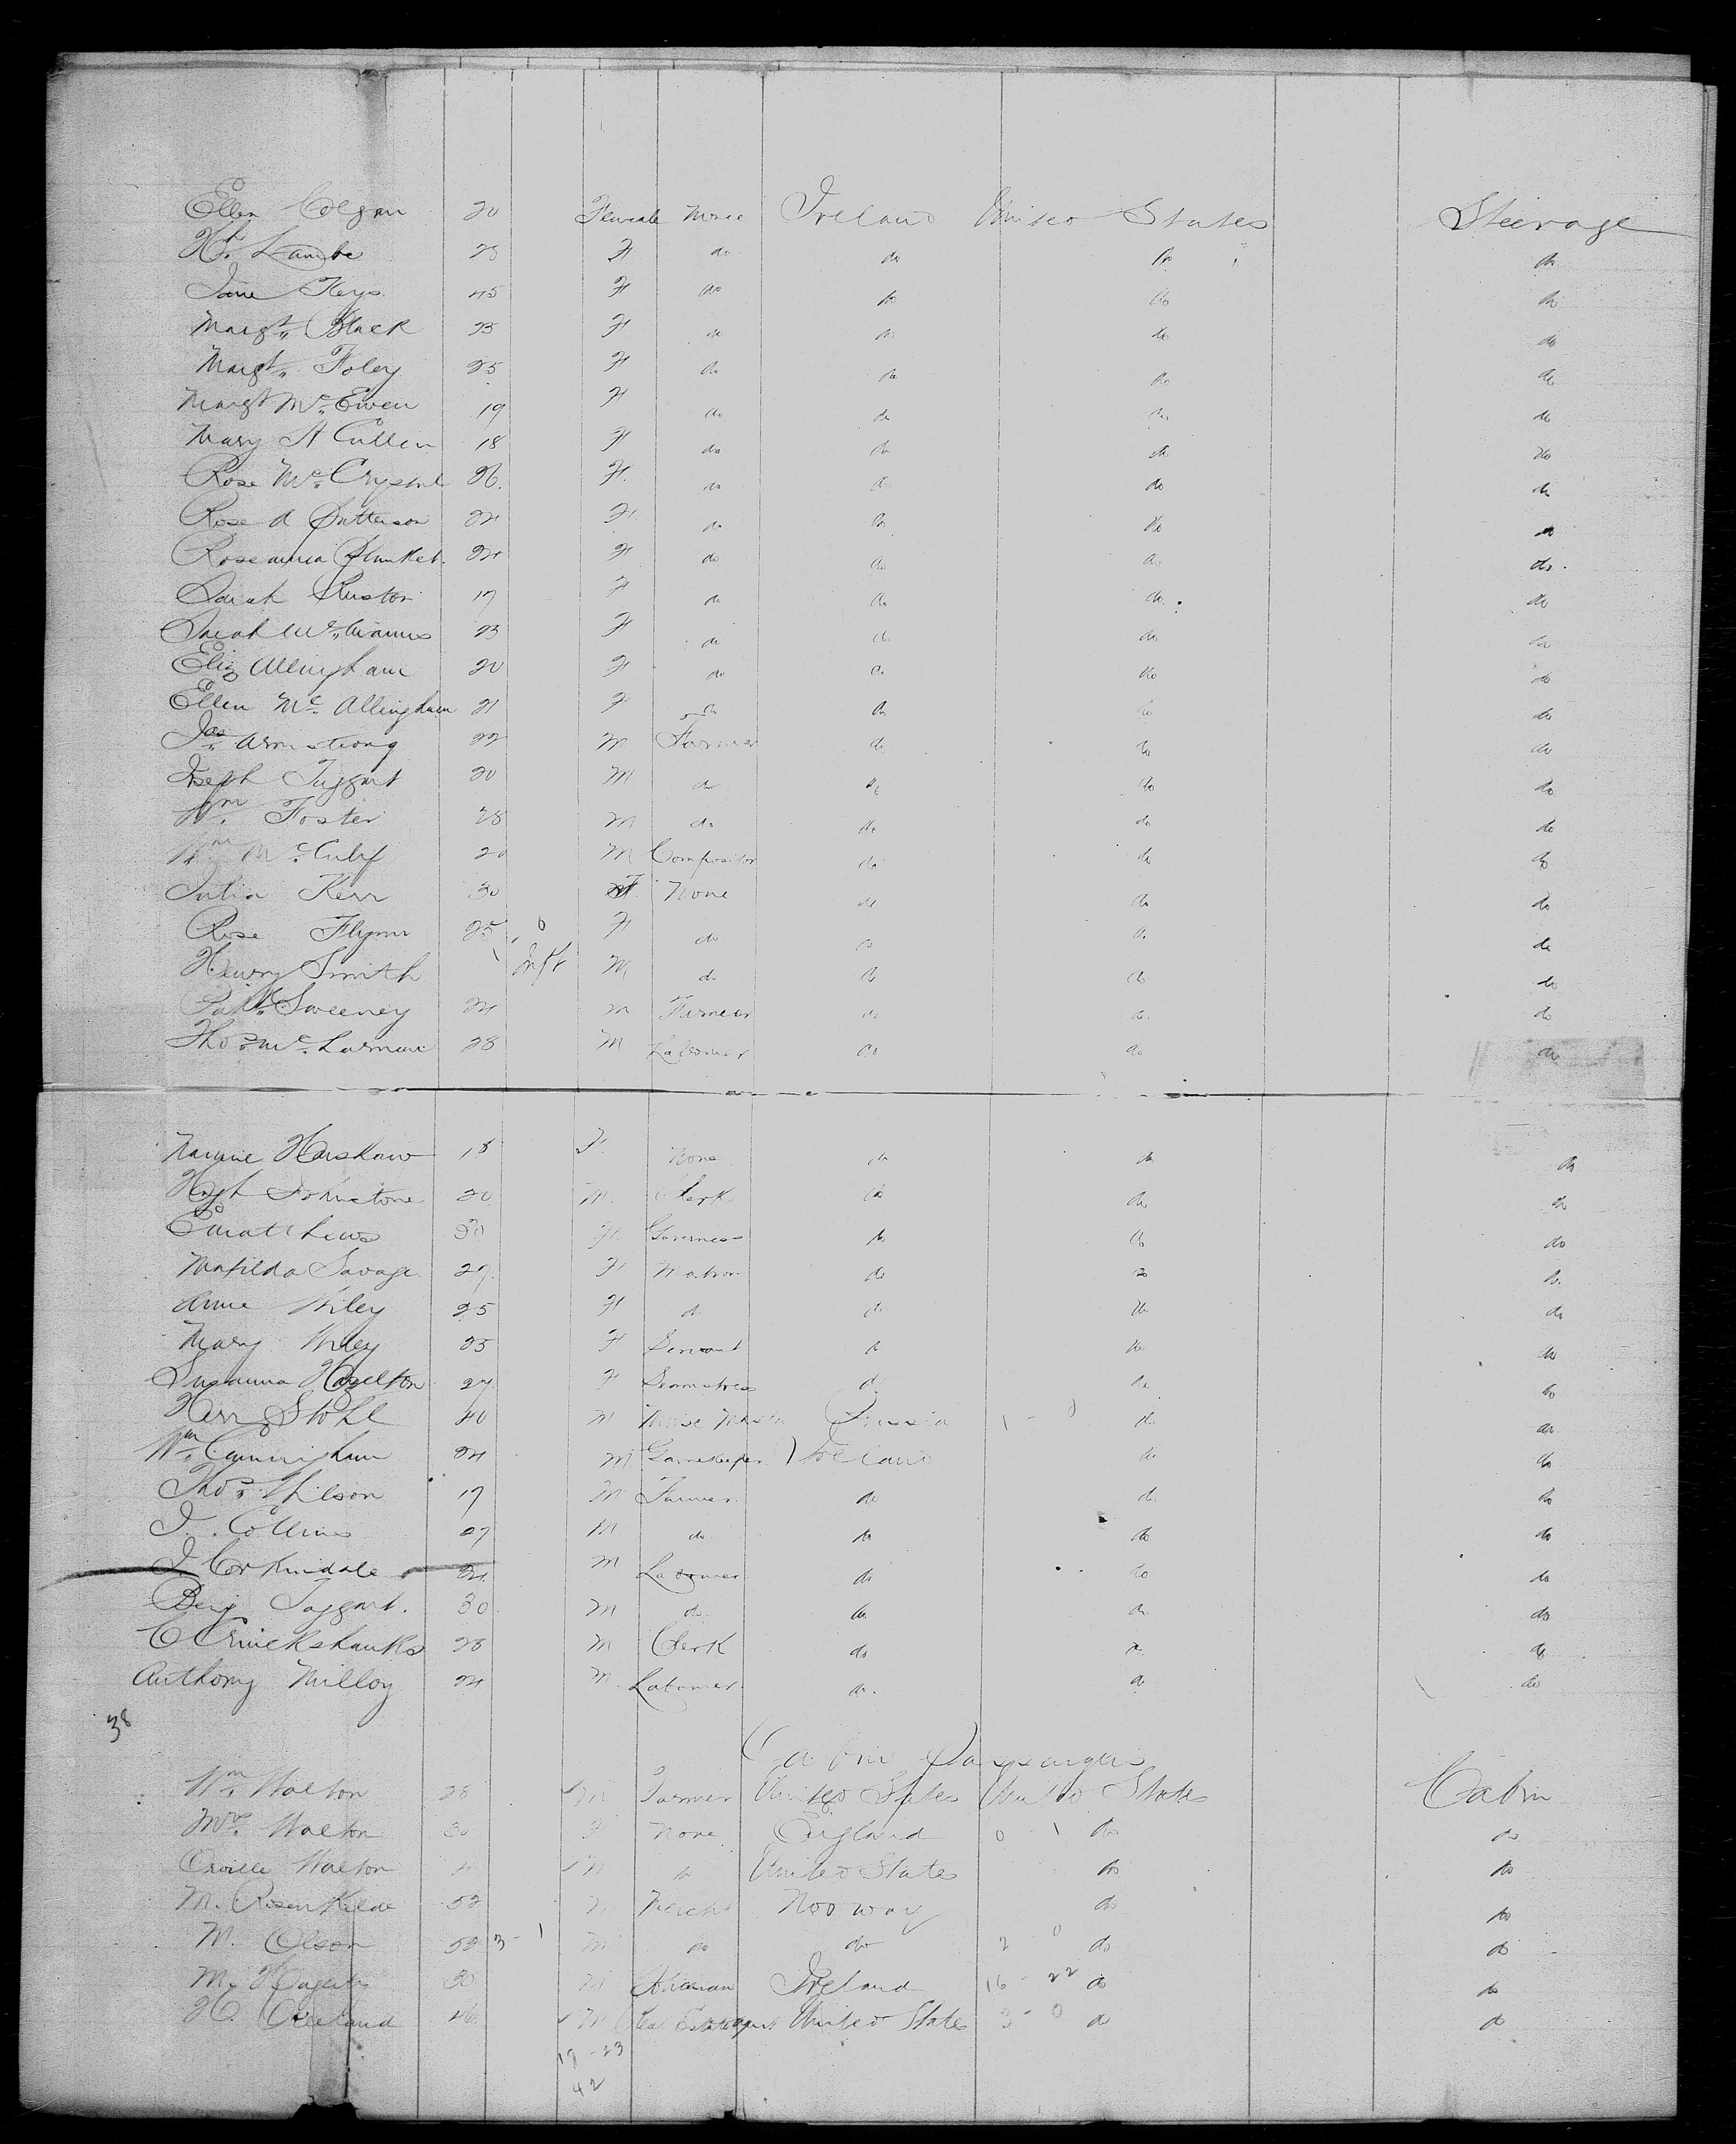 Ellen Colgan 20 Female None Ireland United States Steerage
Kt. Lambe 23 F do do do do
Jane Keys 45 F do do do do
Margt. Black 23 F do do do do
Margt. Foley 25 F do do do do
Margt Mc. Ewen 19 F do do do do
Mary A Cullen 18 F do do do do
Rose Mc. Crystal 26. F. do do do do
Rose A Patterson 24 F. do do do do
Roseanna Plunket. 24 F do do do do
Sarah Ruston 17 F do do do do
Sarah Mc. 23 F do do do do
Eliz Allingham 20 F do do do do
Ellen Mc. Allingham 21 F do do do do
Jas. Armstrong 22 M Farmer do do do
Joseph Taggart 20 M do do do do
Wm. Foster 28 M do do do do
Wm Mc. 20 M Compositor do do do
Julia Kerr 30 F. None do do do
Rose Flynn 25 0 F do do do do
Henry Smith Inft M do do do do
Patk. Sweeney 24 M Farmer do do do
Thos. Mc. 28 M Labourer do do do
Nannie Harshaw 18 F. None do do do
Hugh Johnstone 20 M. Clerk do do do
E Matthews 30 F. Governess do do do
Matilda Savage 27. F Matron do do do
Anne Wiley 25 F do do do do
Mary Wiley 23 F Servant do do do
Susanna Hazelton 27 F Seamstress do do do
Herr Stohl 40 M Music Master Prussia 1 - 0 do do
Wm. Cunningham 24 M Gamekeeper Ireland do do
Thos. Wilson 17 M Farmer do do do
J. Collins 27 M do do do do
J Corkindale 24 M Labourer do do do
Benj Taggart. 30 M do do do do
C Cruickshanks 28 M Clerk do do do
Anthony Milloy 24 M. Labourer do do do
38
Cabin Passengers
Wm. Walton 28 M Farmer United States United States Cabin
Mrs. Walton 30 F None England 0 1 do do
Orville Walton 4 M do United States do do
M. Rosenkilde 52 M Mercht Norway do do
M. Olson 52 3 - 1 M do do 2 0 do do
M. 30 M Ireland 16 - 22 do do
H. Cleeland 46 M Real Estate Agent United States 3 - 0 do do
19 - 23
42